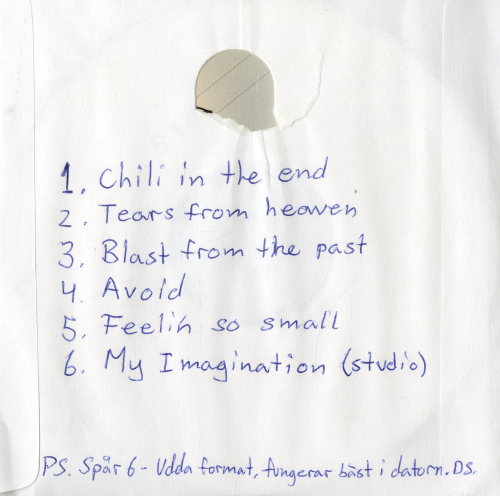 1. Chili in the end
2. Tears from heaven
3. Blast from the past
4. Avoid
5. Feelin so small
6. My Imagination (studio)
PS. Spår 6 - Udda format, fungerar bäst i datorn. DS.